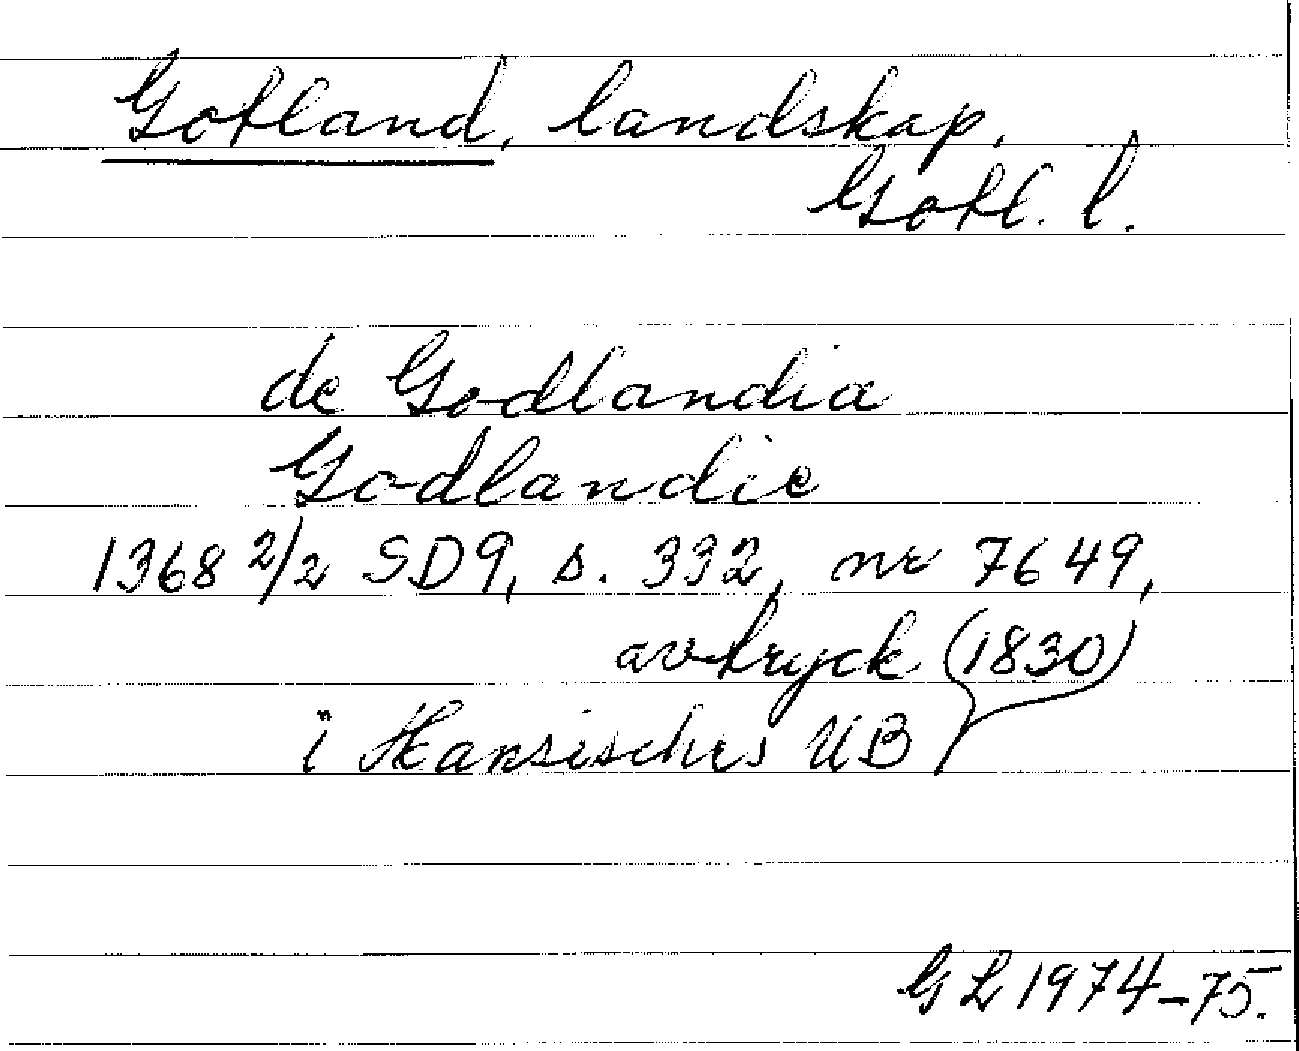 Gotland, landskap.
Gotl. l.
de Godlandia
Godlandie
1368 2/2 SD9, s. 332, nr 7649,
avtryck (1830)
i Hansisches UB
GL 1974-75.